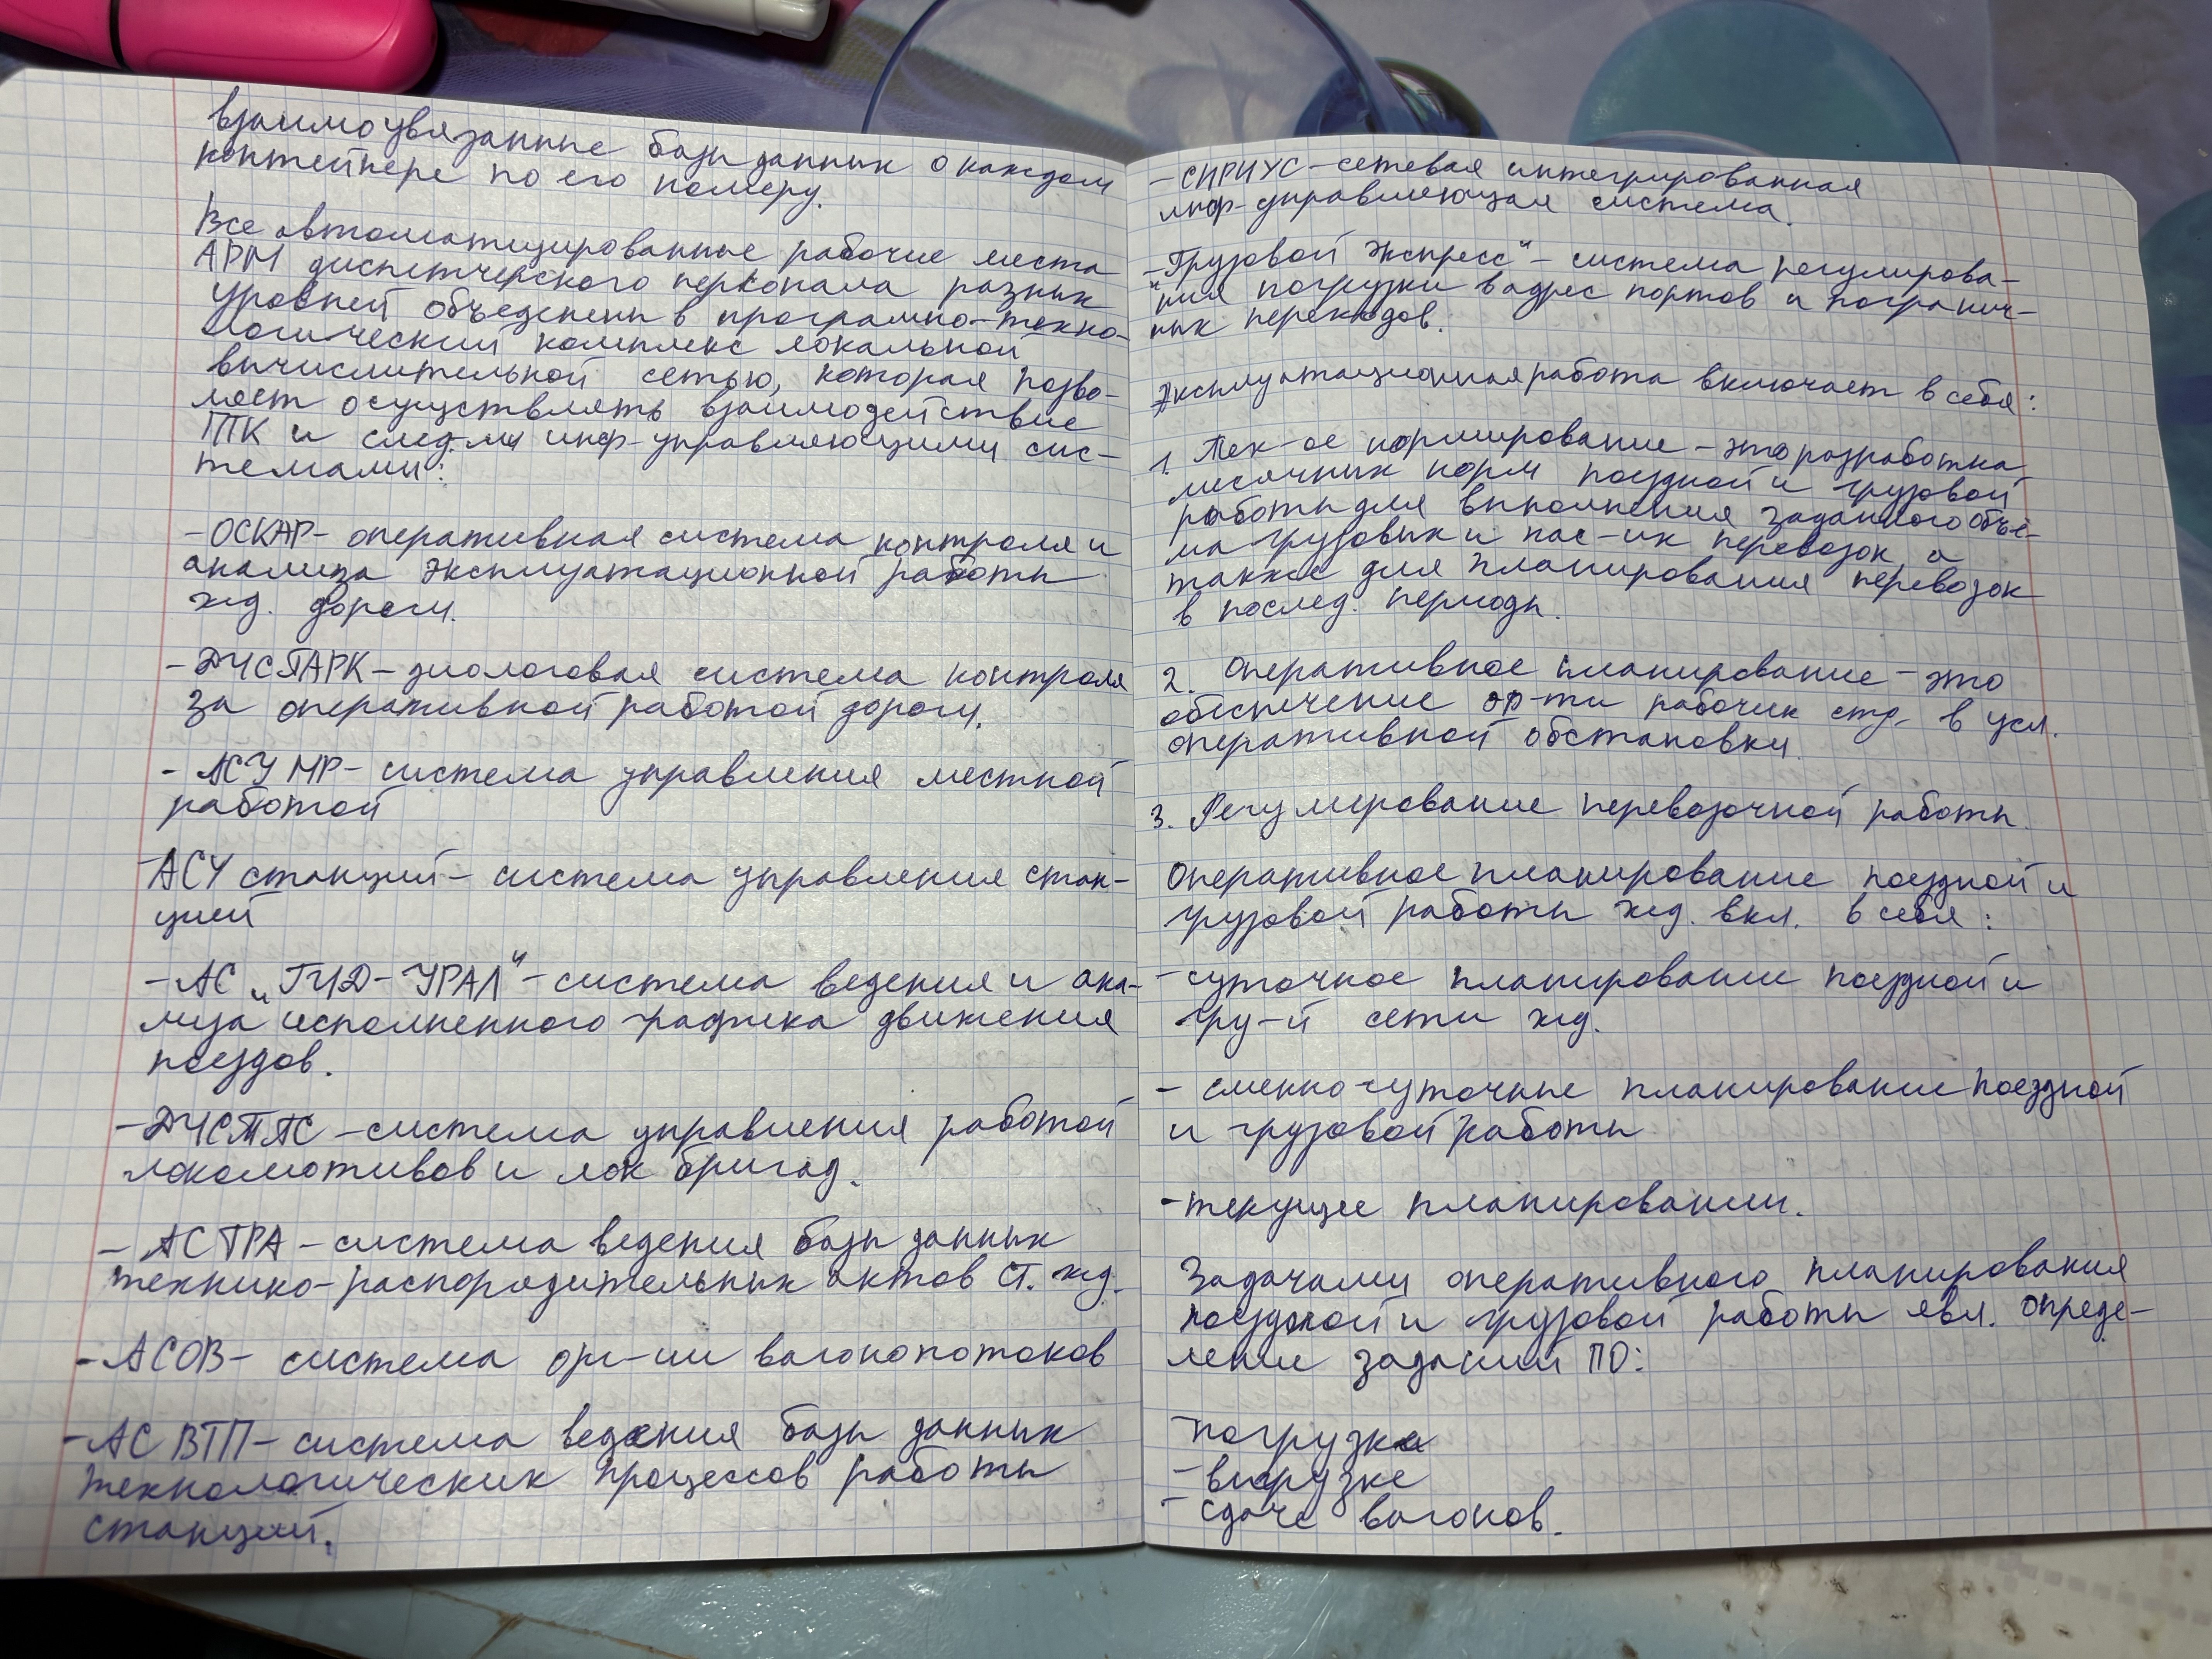 взаимоувязанные базы данных о каждом
контейнере по его номеру.
Все автоматизированные рабочие места
АРМ диспетчерского персонала разных
уровней объеденены в програмно-техно-
логический комплекс локальной
вычислительной сетью, которая позво-
ляет осуществлять взаимодействие
ТК и след-ми инф-управляющими сис-
темами:
- ОСКАР - оперативная система контроля и
анализа эксплуатационной работы
жд. дороги.
- ДЧСПАРК - диологовая система контроля
за оперативной работой дороги.
- АСУ МР - система управления местной
работой
- АСУ станций - система управления стан-
цией
- АС "ГИД-УРАЛ" - система ведения и ана-
лиза исполненного графика движения
поездов.
- ДЧСТПС - система управления работой
локомотивов и лок бригад.
- АС ТРА - система ведения базы данных
технико-распорядительных актов ст. жд.
- АСОВ - система орг-ии вагонопотоков
- АС ВТП - система ведения базы данных
технологических процессов работы
станций.
- СИРИУС - сетевая интегрированная
инф-управляющая система.
- "Грузовой экспресс" - система регулирова-
ния погрузки в адрес портов и погранич-
ных переходов.
Эксплуатационная работа включает в себя:
1. Тех-ое нормирование - это разработка
месячных норм поездной и грузовой
работы для выполнения заданного объё-
ма грузовых и пас-их перевозок, а
также для планирования перевозок
в послед. периоды.
2. Оперативное планирование - это
обеспечение ор-ти рабочих стр. в усл.
оперативной обстановки.
3. Регулирование перевозочной работы.
Оперативное планирование поездной и
грузовой работы жд. вкл. в себя:
- суточное планирование поездной и
гру-й сети жд.
- сменно-суточные планирование поездной
и грузовой работы
- текущее планировании.
Задачами оперативного планирования
поездной и грузовой работы явл. опреде-
ление заданий ПО:
- погрузке
- выгрузке
- сдаче вагонов.